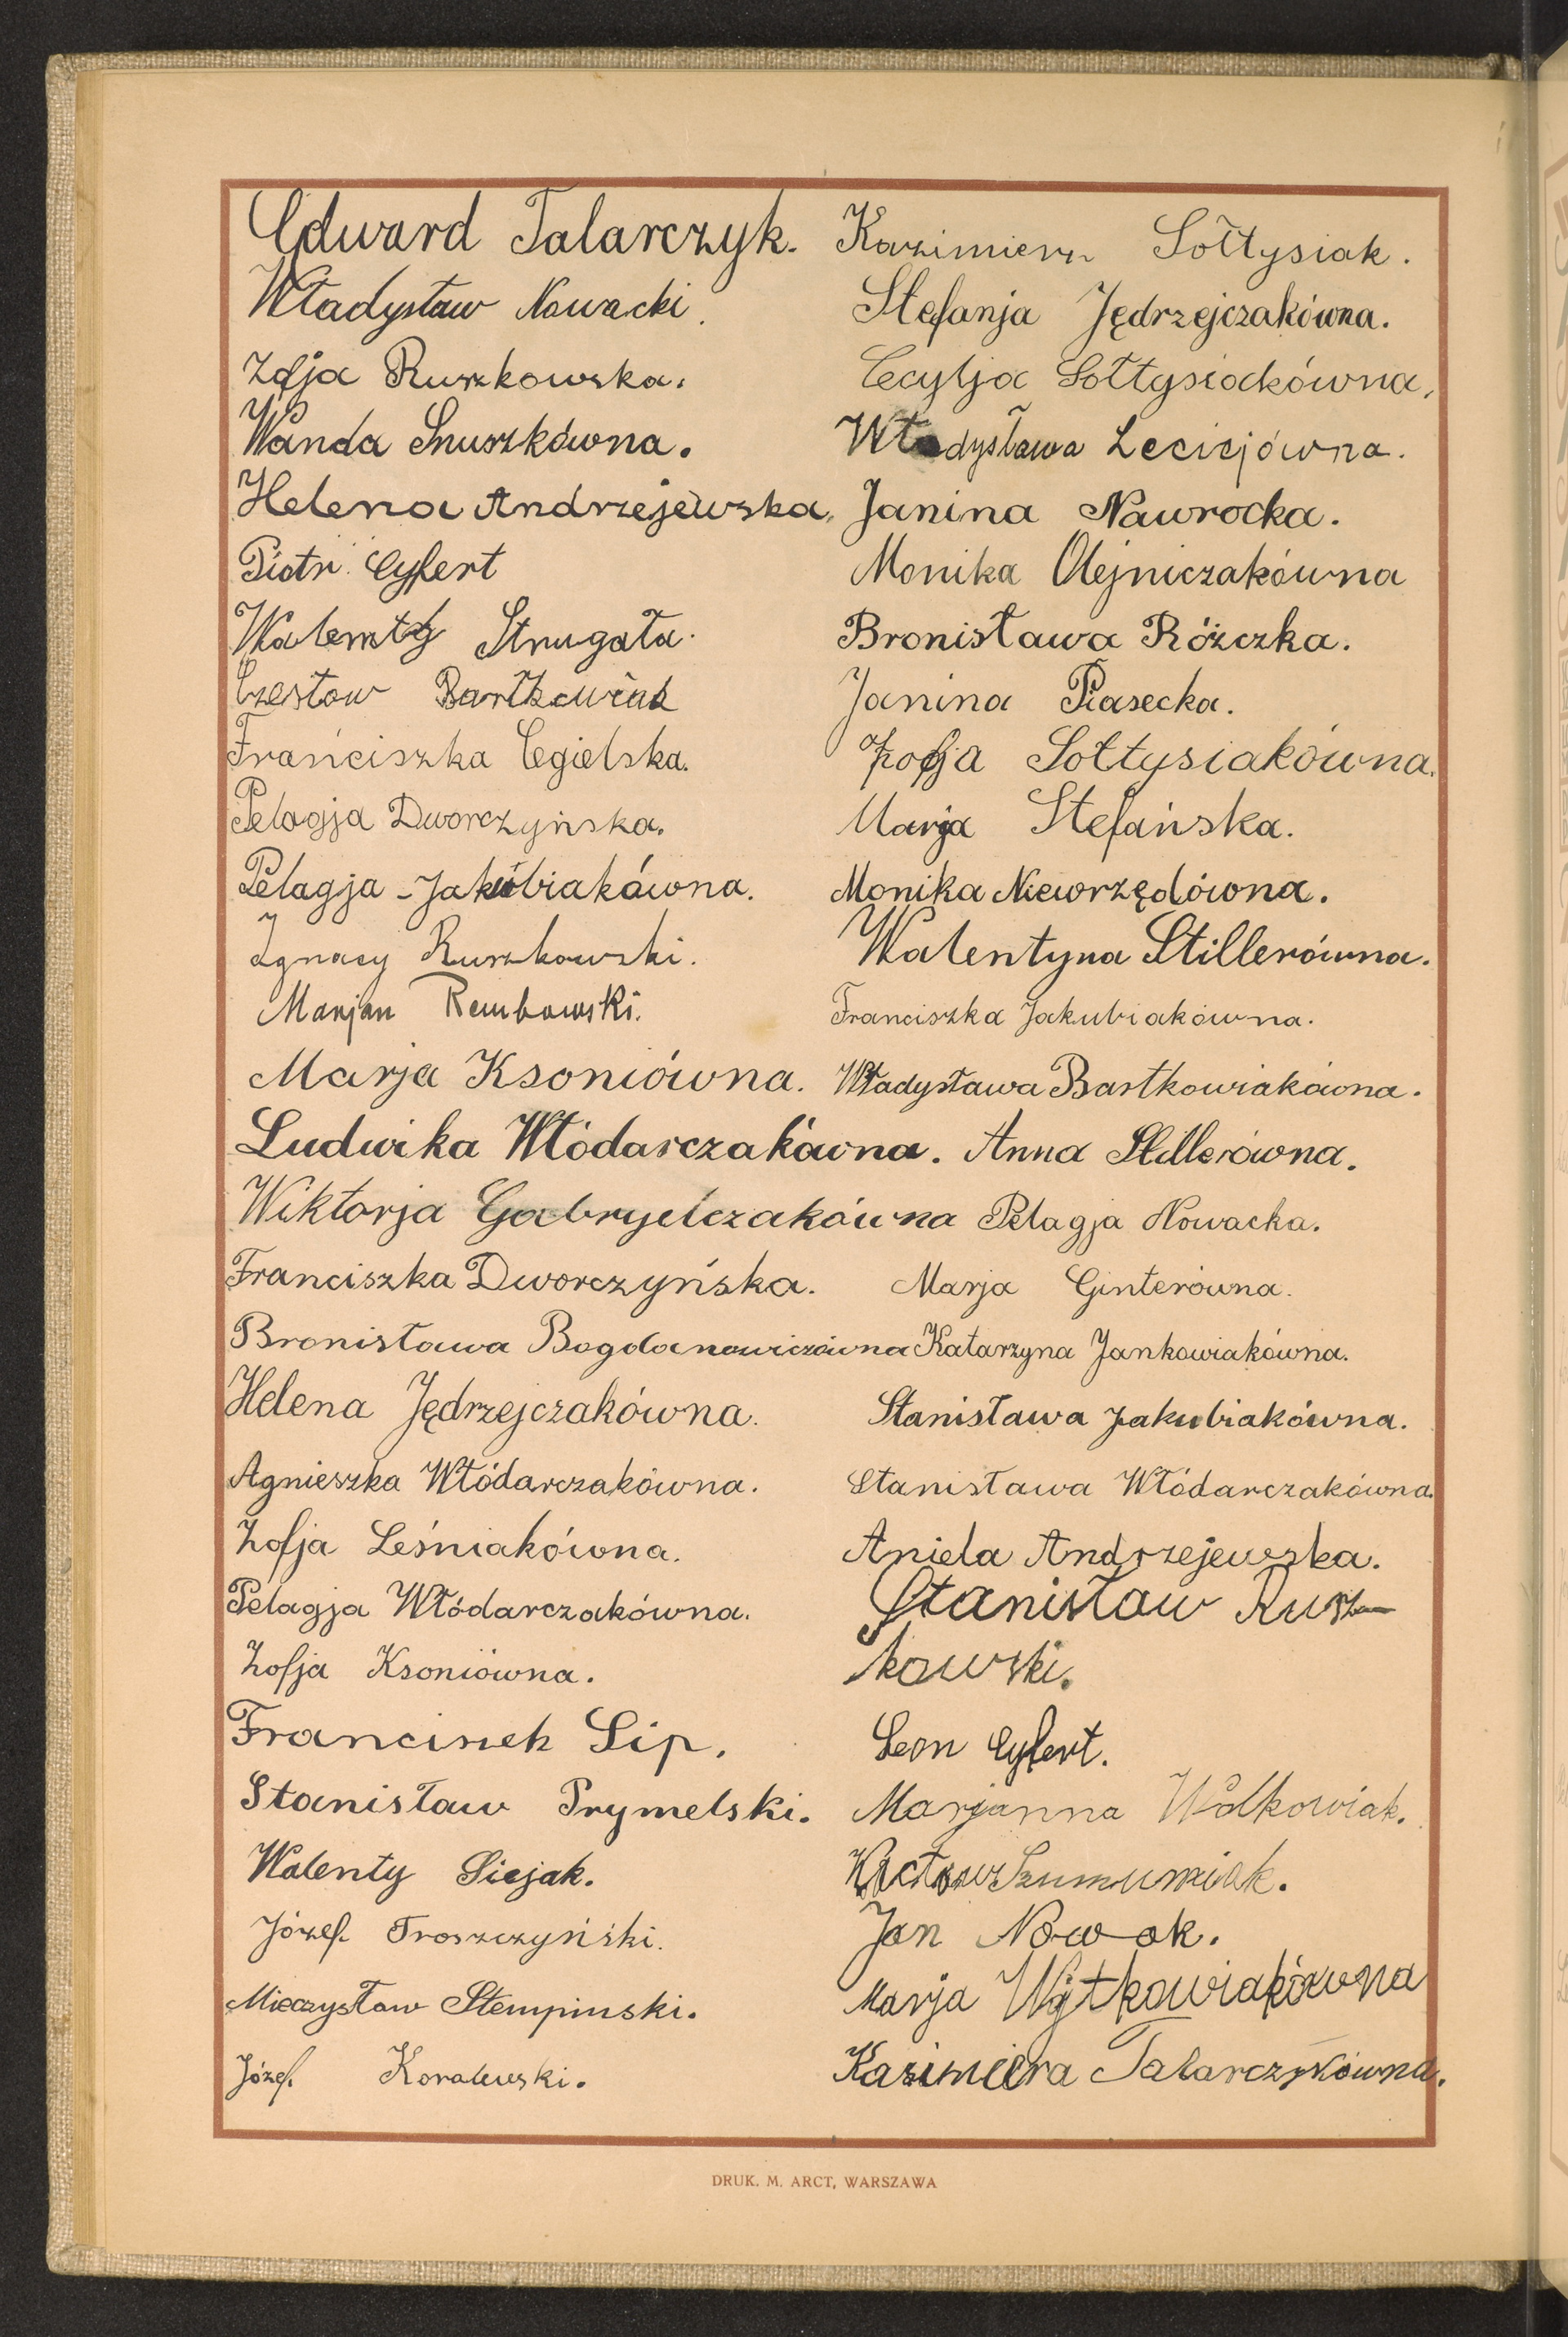 Edward Talarczyk.
Władysław Nowacki.
Zofja Ruszkowska.
Wanda Snuszkówna.
Helena Andrzejewska.
Piotr Cyfert
Walenty Strugała.
Czesław Bartkowiak
Franciszka Cegielska.
Pelagja Dworczyńska.
Pelagja Jakubiakówna.
Ignacy Ruszkowski.
Marjan Rembowski.
Marja Ksoniówna.
Ludwika Włódarczakówna.
Wiktorja Gabryelczakówna
Franciszka Dworczyńska.
Bronisława Bogdanowiczówna
Helena Jędrzejczakówna.
Agnieszka Włódarczakówna.
Zofja Leśniakówna.
Pelagja Włódarczakówna.
Zofja Ksoniówna.
Franciszek Lip.
Stanisław Prymelski.
Walenty Siejak.
Józef Troszczyński.
Mieczysław Stempinski.
Józef Koralewski.
Kazimierz Sołtysiak.
Stefanja Jędrzejczakówna.
Cecylja Sołtysiakówna.
Władysława Leciejówna.
Janina Nawrocka.
Monika Olejniczakówna
Bronisława Różczka.
Janina Piasecka.
Zofja Sołtysiakówna.
Marja Stefańska.
Monika Niewrzędówna.
Walentyna Stillerówna.
Franciszka Jakubiakówna.
Władysława Bartkowiakówna.
Anna Stillerówna.
Pelagja Nowacka.
Marja Ginterówna.
Katarzyna Jankowiakówna.
Stanisława Jakubiakówna.
Stanisława Włódarczakówna.
Aniela Andrzejewska.
Stanisław Rusz-
kowski.
Leon Cyfert.
Marjanna Wolkowiak.
Wacław
Jan Nowak.
Marja Wojtkowiakówna
Kazimiera Talarczykówna.
DRUK. M. ARCT, WARSZAWA